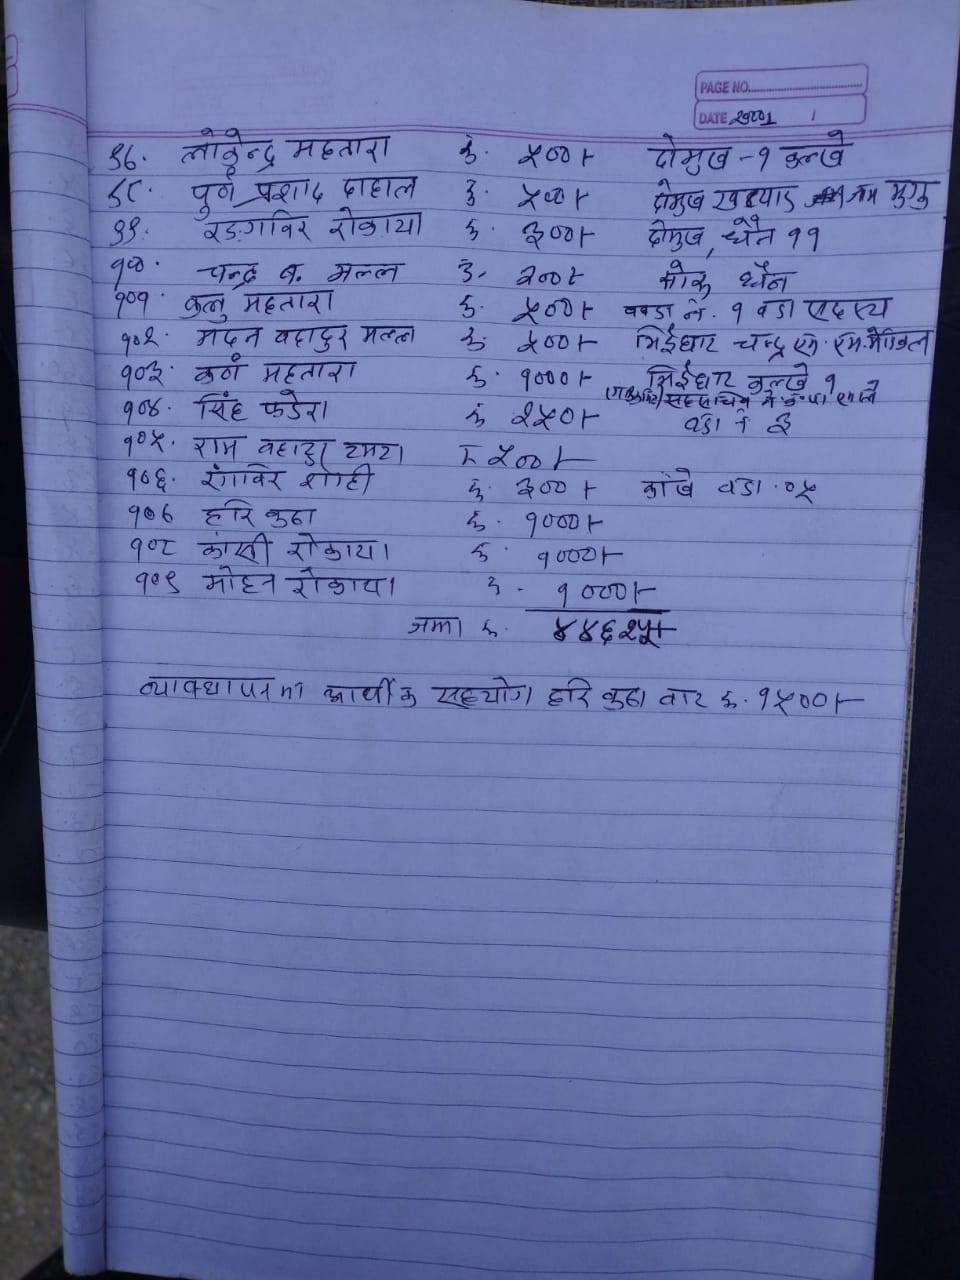 PAGE NO.
DATE
९७. लोकेन्द्र महतारा रु. ५००।- दोमुख - १ कल्खे
९८. पुर्ण प्रशाद दाहाल रु. ५००।- दोमुख खत्याड मुगु
९९. खड्गविर रोकाया रु. ३००।- दोमुख, धैन ११
१००. चन्द्र ब. मल्ल रु. २००।- धैन
१०१. कलु महतारा रु. ५००।- वडा नं. १ वडा सदस्य
१०२. मदन बहादुर मल्ल रु. ५००।- भिईघार चन्द्र
१०३. कर्ण महतारा रु. १०००।- भिईघार कल्खे १
१०४. सिंह फडेरा रु. २५०।- वडा नं ३
१०५. राम बहादुर टमटा रु ५००।-
१०६. रंगविर शाही रु. ३००।- कांखे वडा. ०५
१०७ हरि बुढा रु. १०००।-
१०८ कांसी रोकाया रु. १०००।-
१०९ मोहन रोकाया रु. १०००।-
जम्मा रु. ४४६२५।-
व्यावथापनमा आर्थीक सहयोग हरि बुढा बाट रु. १५००।-